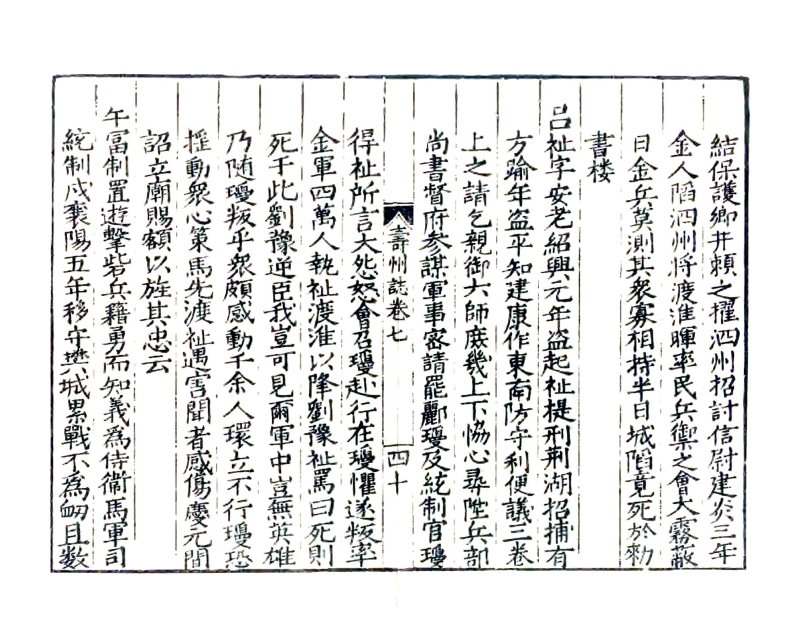 結保護鄉井賴之擢泗州招討信尉建炎三年
金人陷泗州將渡淮暉率民兵禦之會大霧蔽
日金兵莫測其衆寡相持半日城陷竟死於勑
書楼
吕祉字安老紹興元年盗起祉提刑荆湖招捕有
方踰年盗平知建康作東南防守利便議三卷
上之請乞親御大師庶幾上下恊心尋陞兵部
尚書督府参謀軍事密請罷酈瓊及統制官瓊
壽州誌卷七
四十
得祉所言大怨怒會召瓊赴行在瓊懼遂叛率
金軍四萬人執祉渡淮以降劉豫祉罵曰死則
死于此劉豫逆臣我豈可見爾軍中豈無英雄
乃随瓊叛乎衆頗感動千余人環立不行瓊恐
揺動衆心策馬先渡祉遇害聞者感傷慶元間
詔立廟賜額以旌其忠云
午冨制置遊擊砦兵籍勇而知義爲侍衞馬軍司
統制戍襄陽五年移守樊城累戰不爲衂且数